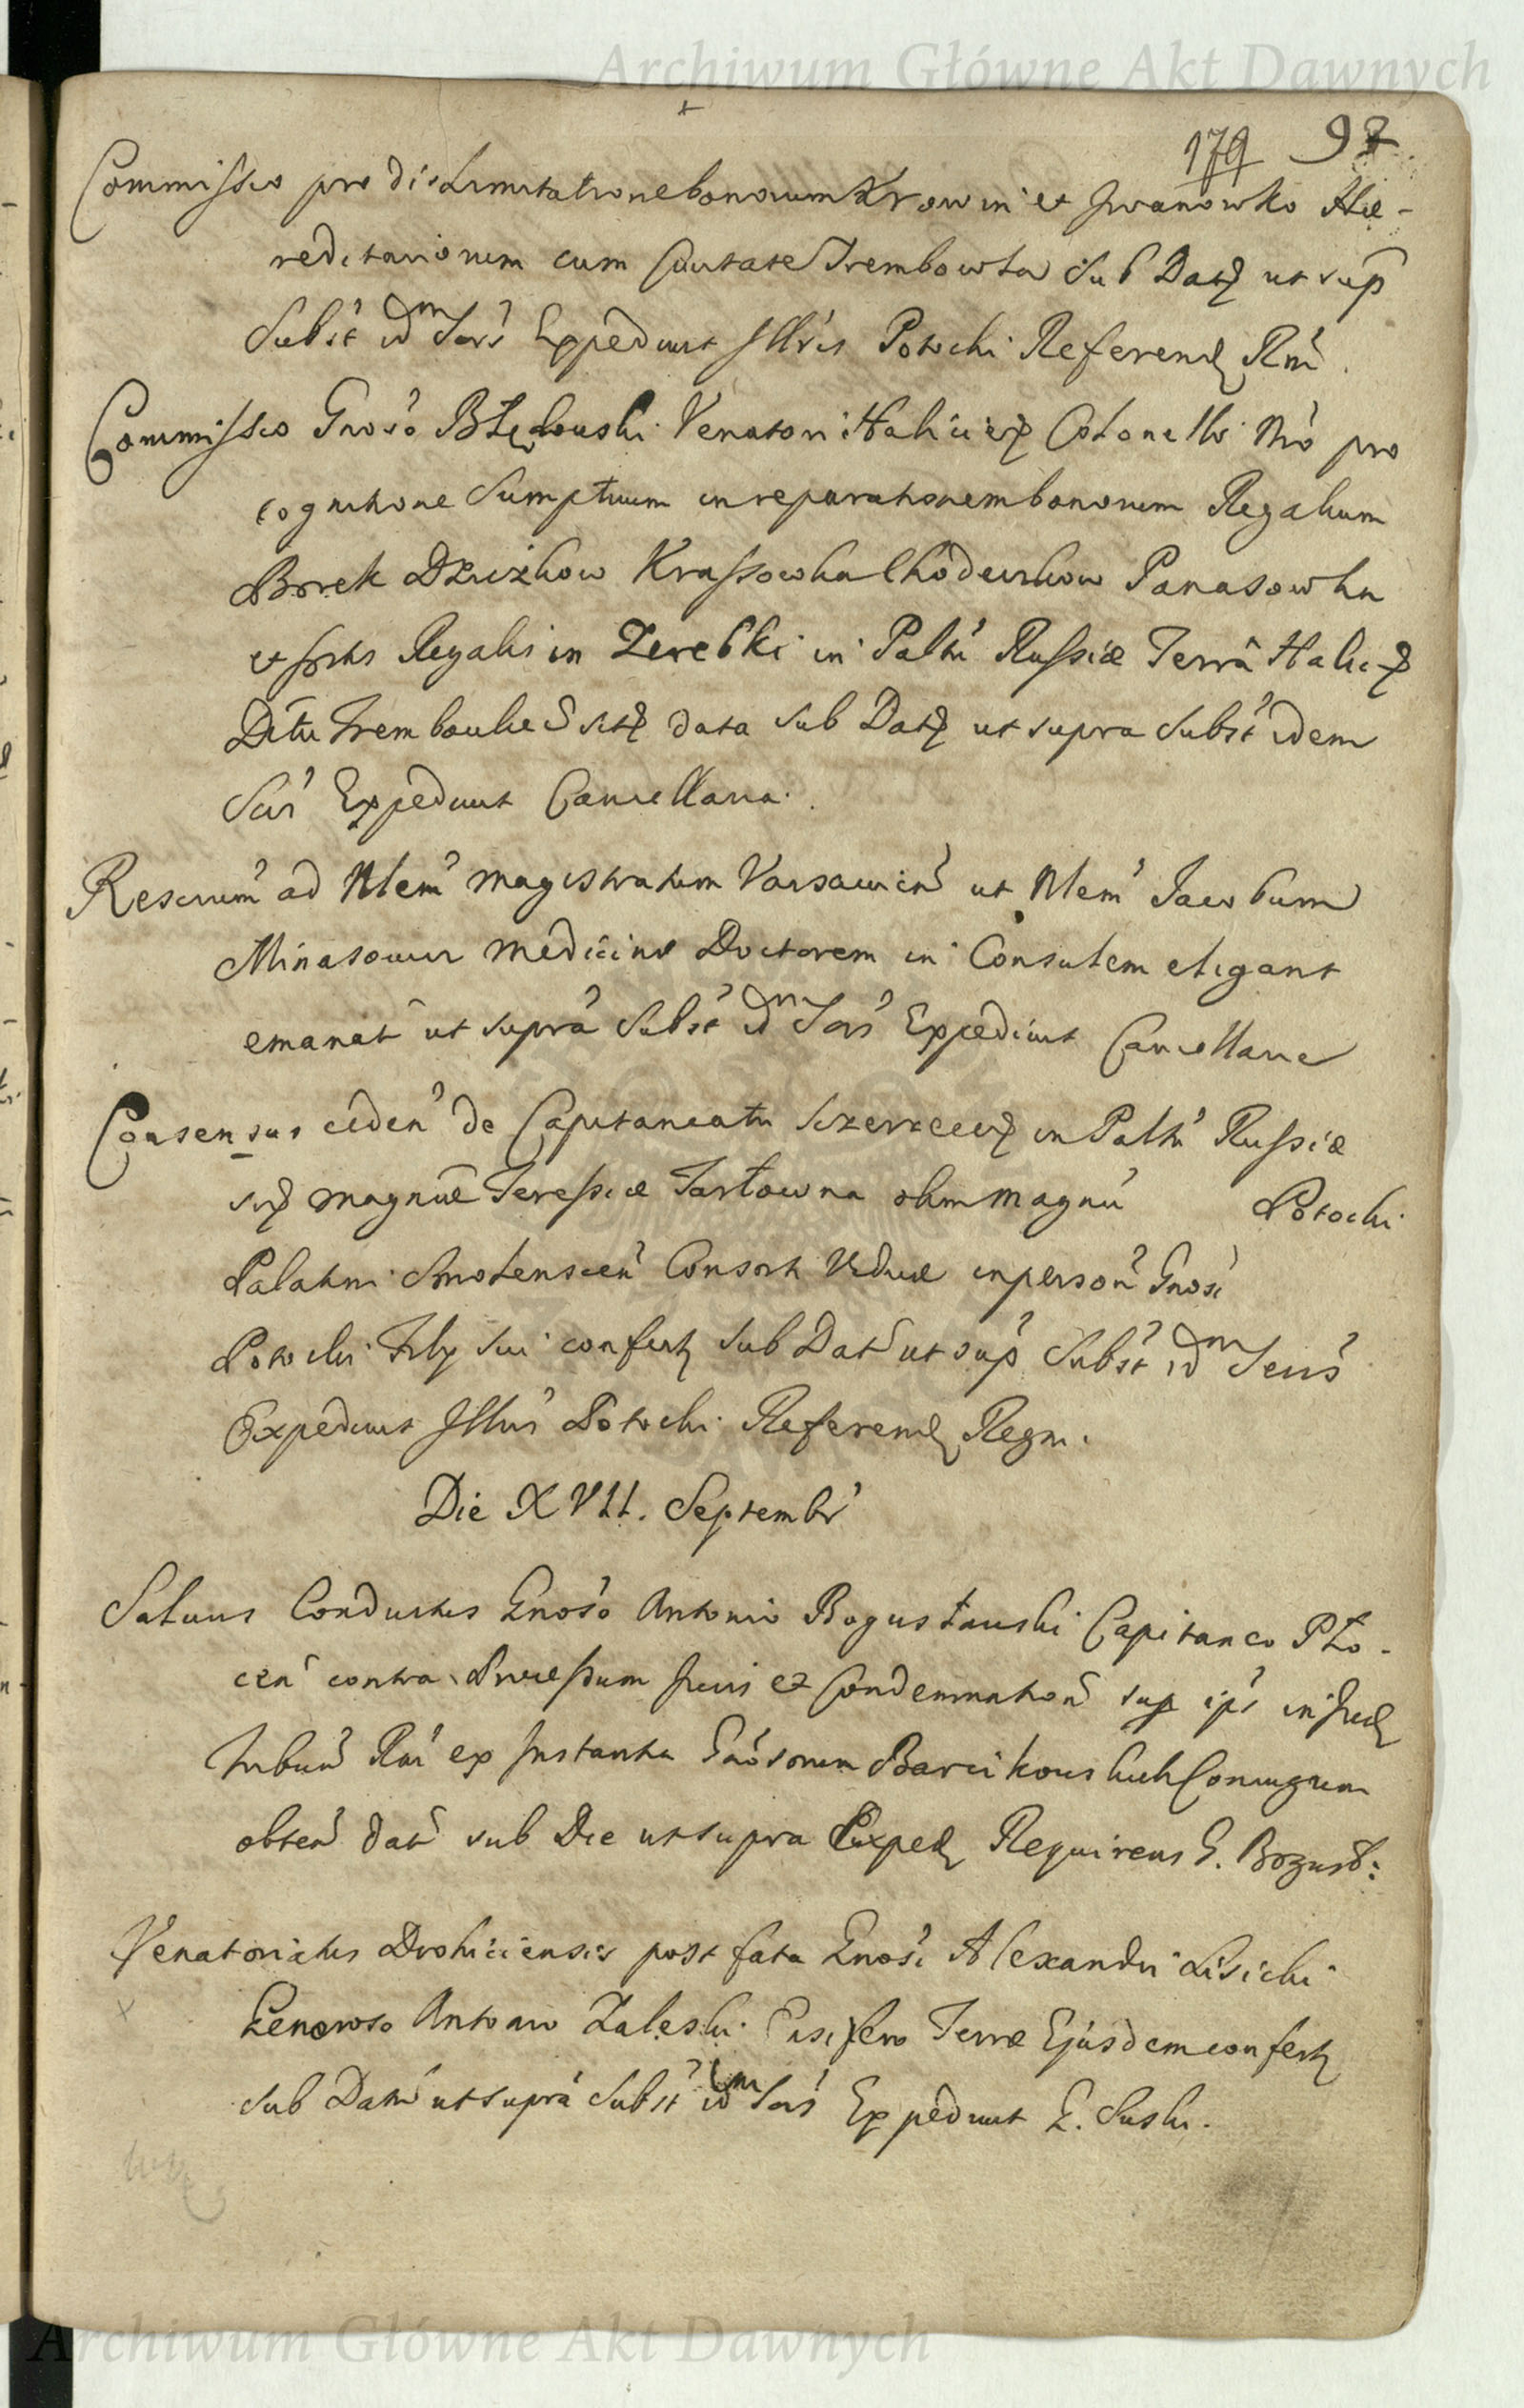 Archiwum Główne Akt Dawnych
179 97
Commissio pro dislimitatione bonorum Krowin et Iwanowko Hæ-
reditariorum cum Civitate Trembowla sub Datt ut sup
Subst id͠m Secrs Expediunt Illris Potocki Referend Rni
Commissio Gnoso Błędowski Venatori Haliciens Colonello Nro pro
cognitione Sumptuum in reparationem bonorum Regalium
Borek Dźwiżkow Krassowka Chodeczkow Panasowka
et sortis Regalis in Zerebki in Paltu Russiæ Terra Halic
Dttu Trembowlien sitt data sub Datt ut supra Subst idem
Secrs Expediunt Cancellaria
Rescrum ad Nlem magistratum Varsavien ut Nlem Jacobum
Minasowicz medicinæ Doctorem in Consulem eligant
emanat ut supra Subst id͠m Secrs Expediunt Cancellariæ
Consensus ceden de Capitaneatu Szczerzecen in Paltu Russiæ
sit magnæ Teressiæ Tarłowna olim magni Potocki
Palatini Smolenscen Consort Viduæ in person Gnosi
Potocki Filij sui confert sub Dat ut sup Subst id͠m Secrs
Expediunt Illris Potocki Referend Regni.
Die XVII. Septembr
Salvus Conductus Gnoso Antonio Bogusławski Capitaneo Pło-
cen contra Processum Juris et Condemnation sup ips in Jud
Tribun Rni ex Instantia Gnosorum Barcikowskich Conjugum
obten dat sub Die ut supra Exped Requirens G. Bogusł:
Venatoriatus Drohiciensis post fata Gnosi Alexandri Lisicki
Generoso Antonio Zaleski Ensifero Terræ Ejusdem confert
sub Datt ut supra Subst id͠m Secrs Expediunt G. Suski.
Archiwum Główne Akt Dawnych